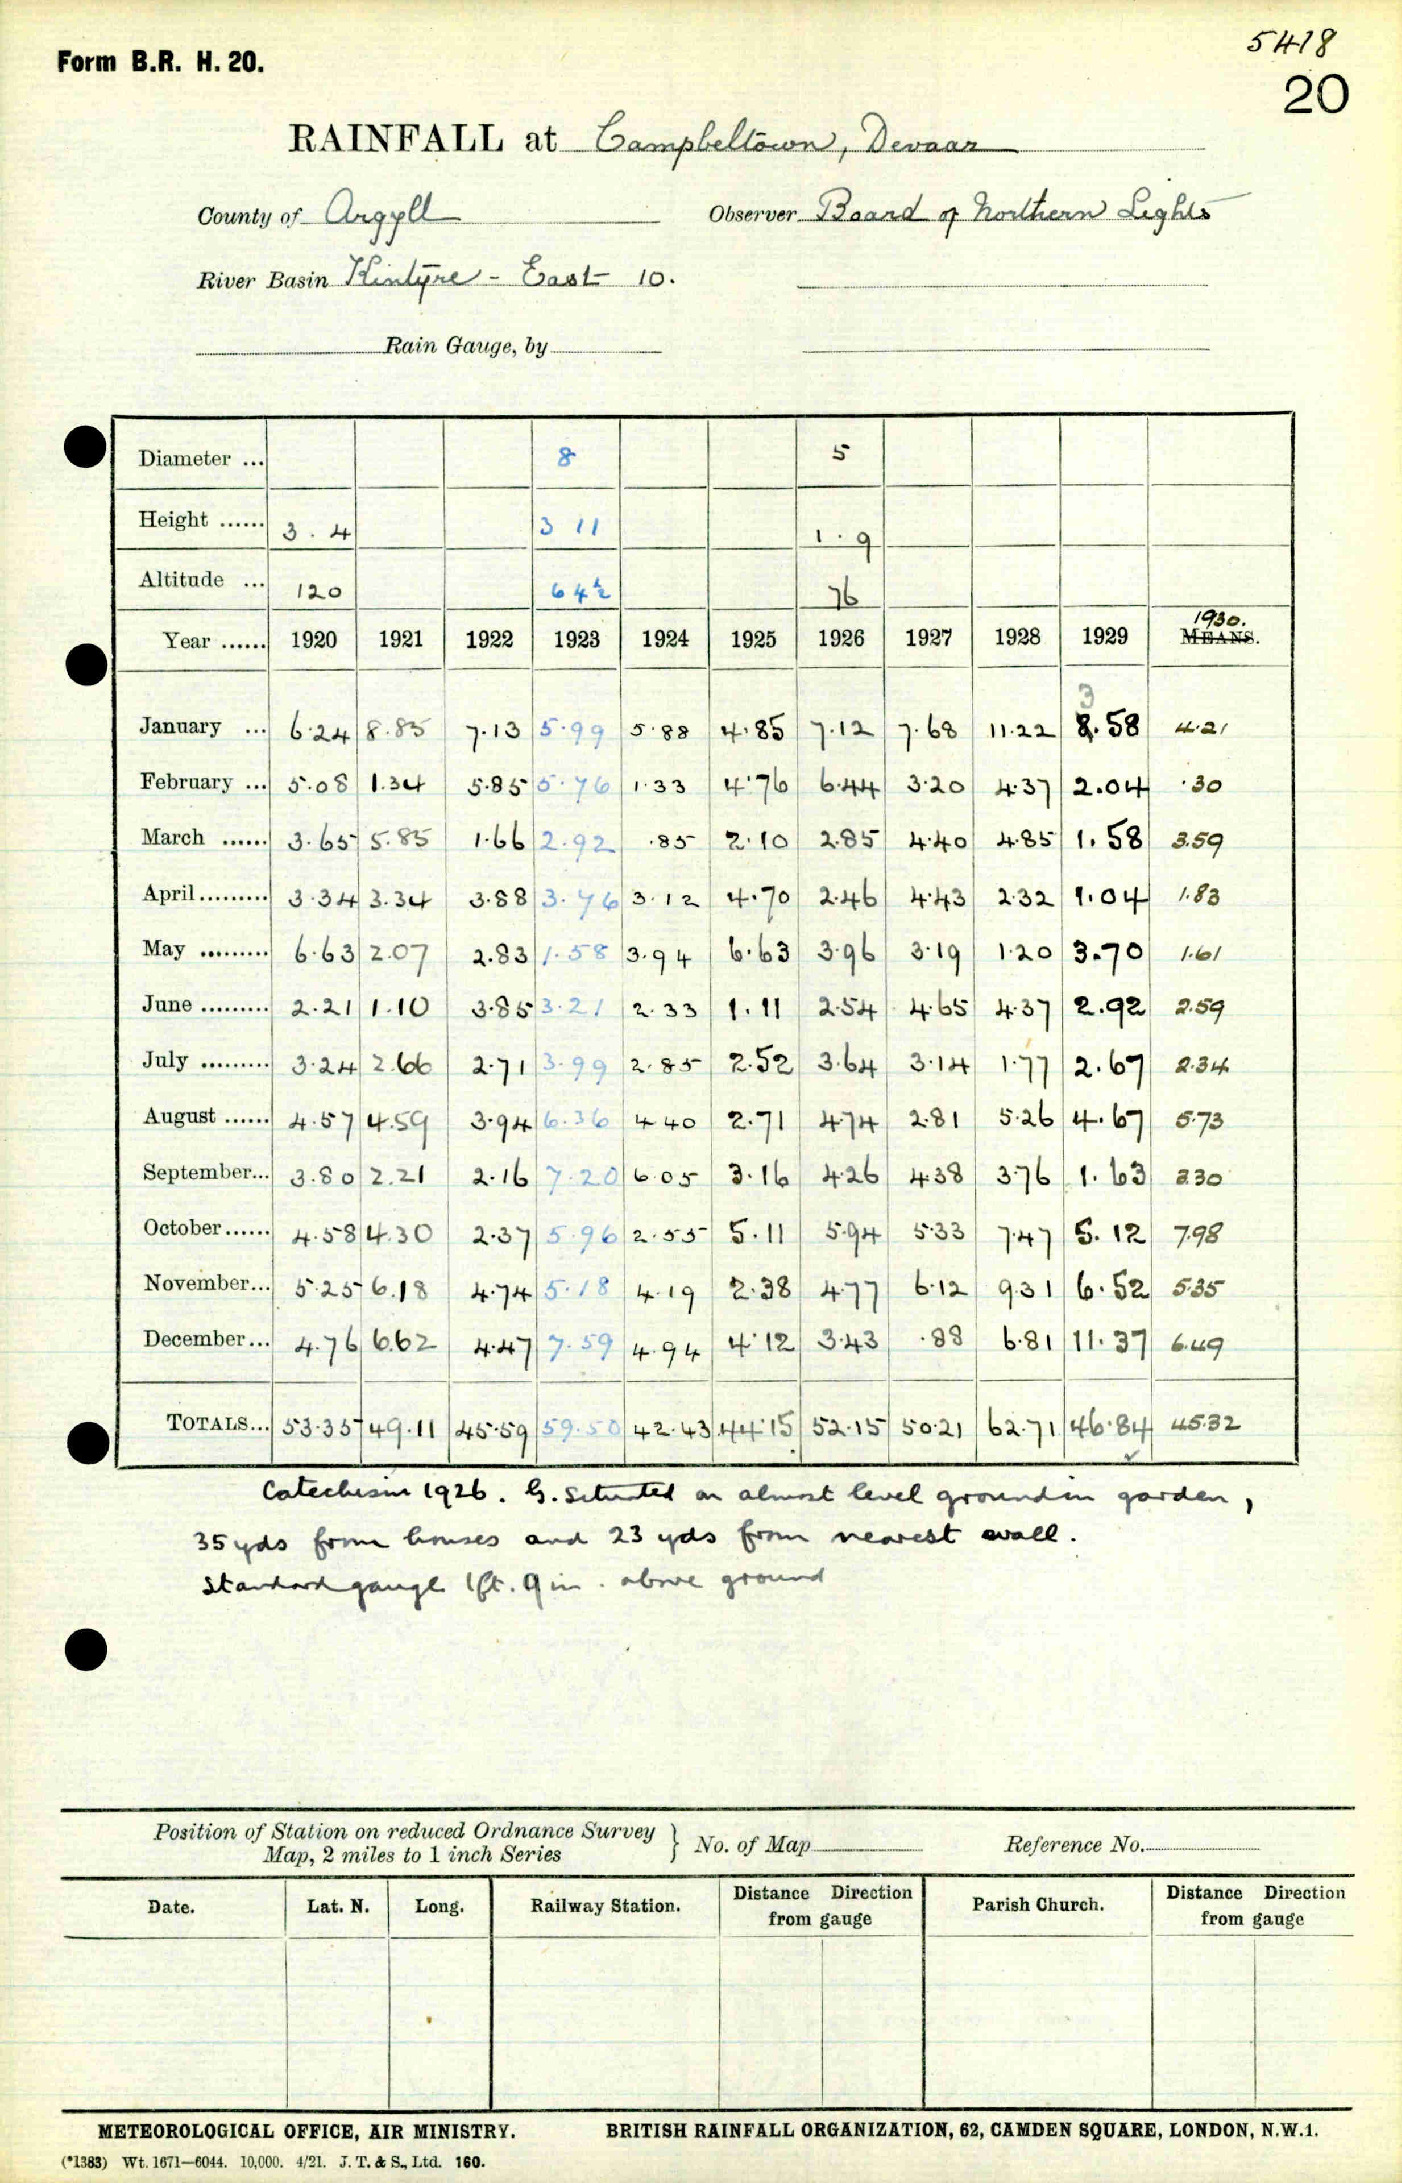 Form B.R. H. 20.
5418
20
RAINFALL at Campbeltown, Devaar
County of Argyll Observer Board of Northern Lights
River Basin Kintyre - East 10.
Rain Gauge, by
Diameter ... 8 5
Height ...... 3.4 3 11 1.9
Altitude ... 120 64½ 76
1930.
Year ...... 1920 1921 1922 1923 1924 1925 1926 1927 1928 1929 MEANS.
3
January ... 6.24 8.85 7.13 5.99 5.88 4.85 7.12 7.68 11.22 8.58 4.21
February ... 5.08 1.34 5.85 5.76 1.33 4.76 6.44 3.20 4.37 2.04 .30
March ...... 3.65 5.85 1.66 2.92 .85 2.10 2.85 4.40 4.85 1.58 3.59
April ......... 3.34 3.34 3.88 3.76 3.12 4.70 2.46 4.43 2.32 1.04 1.83
May ......... 6.63 2.07 2.83 1.58 3.94 6.63 3.96 3.19 1.20 3.70 1.61
June ......... 2.21 1.10 3.85 3.21 2.33 1.11 2.54 4.65 4.37 2.92 2.59
July ......... 3.24 2.66 2.71 3.99 2.85 2.52 3.64 3.14 1.77 2.67 2.34
August ...... 4.57 4.59 3.94 6.36 4.40 2.71 4.74 2.81 5.26 4.67 5.73
September... 3.80 2.21 2.16 7.20 6.05 3.16 4.26 4.38 3.76 1.63 3.30
October ...... 4.58 4.30 2.37 5.96 2.55 5.11 5.94 5.33 7.47 5.12 7.98
November... 5.25 6.18 4.74 5.18 4.19 2.38 4.77 6.12 9.31 6.52 5.35
December... 4.76 6.62 4.47 7.59 4.94 4.12 3.43 .88 6.81 11.37 6.49
TOTALS... 53.35 49.11 45.59 59.50 42.43 44.15 52.15 50.21 62.71 46.84 45.32
Catechism 1926. G. situated on almost level ground in garden,
35 yds from houses and 23 yds from nearest wall.
Standard gauge 1ft. 9in. above ground
Position of Station on reduced Ordnance Survey
Map, 2 miles to 1 inch Series } No. of Map Reference No.
Date. Lat. N. Long. Railway Station. Distance Direction from gauge Parish Church. Distance Direction from gauge
METEOROLOGICAL OFFICE, AIR MINISTRY. BRITISH RAINFALL ORGANIZATION, 62, CAMDEN SQUARE, LONDON, N.W.1.
(*1383) Wt. 1671—6044. 10,000. 4/21. J. T. & S., Ltd. 160.